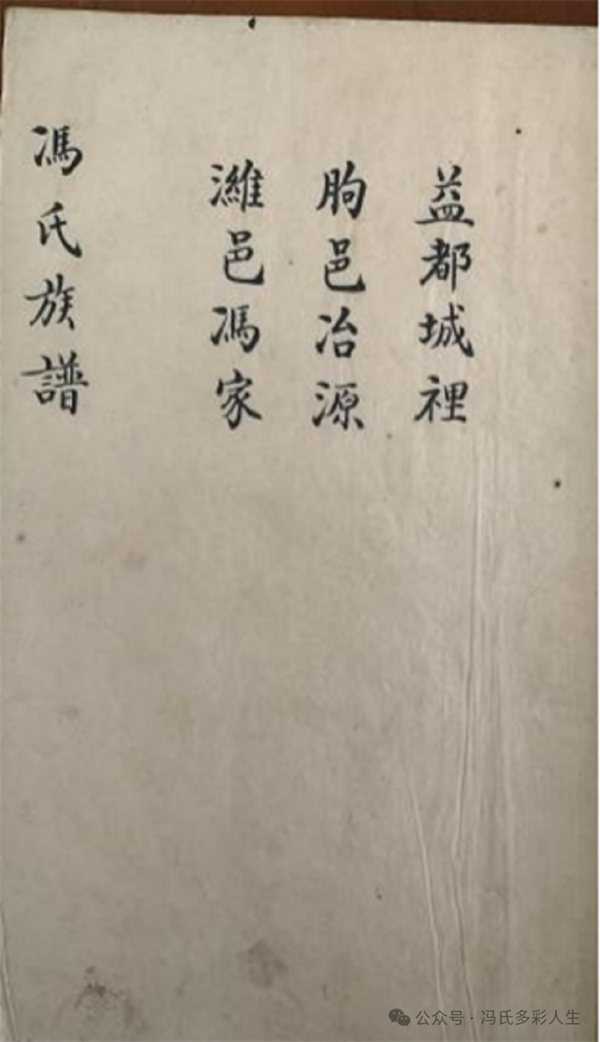 益都城裡
朐邑冶源
濰邑馮家
馮氏族譜
公众号·冯氏多彩人生